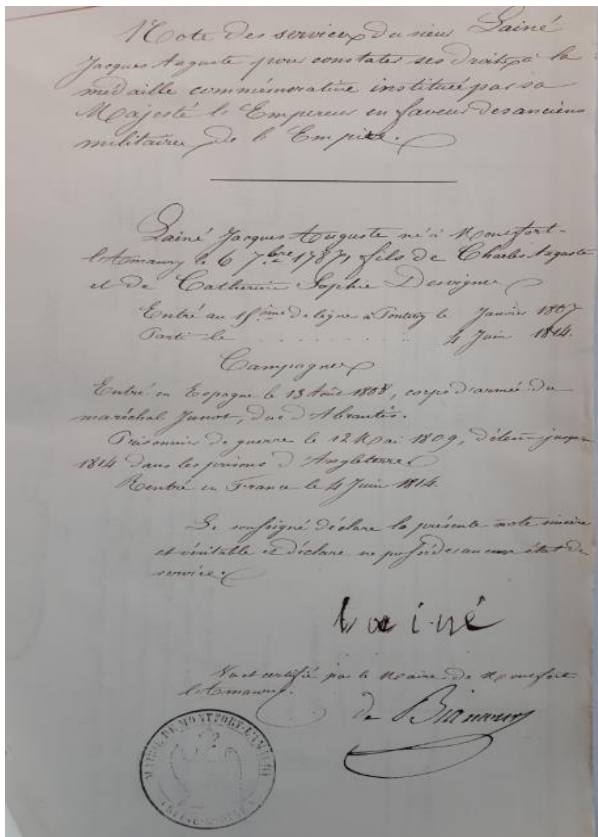 Note des services du sieur Lainé
Jacques Auguste pour constater ses droits à la
médaille commémorative instituée par sa
Majesté l'Empereur en faveur des anciens
militaires de l'Empire.
Lainé Jacques Auguste né à Montfort-
l'Amaury le 6 7.bre 1787, fils de Charles Auguste
et de Catherine Sophie Desvignes
Entré au 15ème de ligne à Pontivy le Janvier 1807
Parti le . . . . . . . . 4 Juin 1814.
Campagnes
Entré en Espagne le 13 Août 1808, corps d'armée du
maréchal Junot, duc d'Abrantès.
Prisonnier de guerre le 12 Mai 1809, détenu jusqu'en
1814 dans les prisons d'Angleterre.
Rentré en France le 4 Juin 1814.
Le soussigné déclare la présente note sincère
et véritable et déclare ne posséder aucun état de
service.
Lainé
Vu et certifié par le Maire de Montfort
l'Amaury.
de Biancourt
MAIRIE DE MONTFORT-L'AMAURY